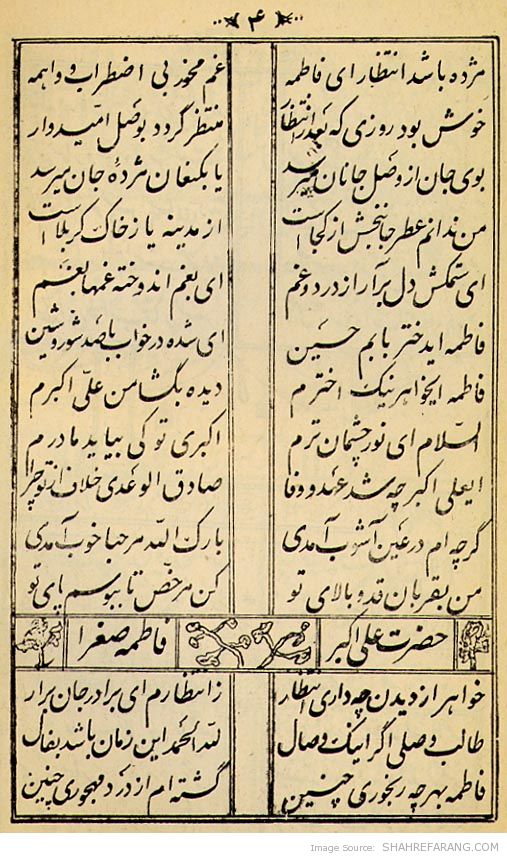 ۴
مژده باشد انتظار ای فاطمه غم مخور بی اضطراب و واهمه
خوش بود روزی که بعد از انتظار منتظر گردد بوصل امیدوار
بوی جان از وصل جانان میرسد یا بکنعان مژدهٔ جان میرسد
من ندانم عطر جانبخش از کجاست از مدینه یا ز خاک کربلاست
ای ستمکش دل برآر از درد و غم ای بغم اندوخته غمها بغم
فاطمه ایدختر بابم حسین ای شده در خواب با صد شور و شین
فاطمه ایخواهر نیک اخترم دیده بگشا من علی اکبرم
السلام ای نور چشمان ترم اکبری تو کی بیاید مادرم
ایعلی اکبر چه شد عهد و وفا صادق الوعدی خلاف از تو چرا
گرچه ام در عین آشوب آمدی بارک الله مرحبا خوب آمدی
من بقربان قد و بالای تو کن مرخص تا ببوسم پای تو
حضرت علی اکبر فاطمه صغرا
خواهر از دیدن چه داری انتظار ز انتظارم ای برادر جان برار
طالب وصلی اگر اینک وصال لله الحمد این زمان باشد بفال
فاطمه بهر چه رنجوری چنین گشته ام از درد مهجوری چنین
Image Source: SHAHREFARANG.COM